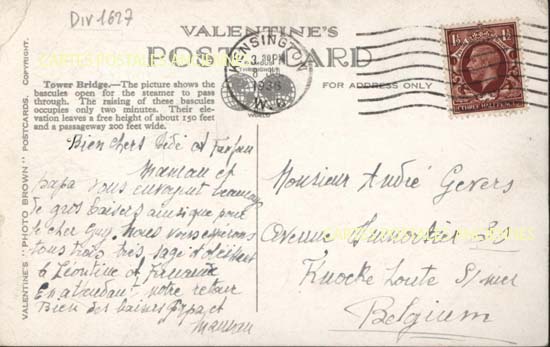 Div 1627
VALENTINE'S
POSTCARD
CARTES POSTALES ANCIENNES
FOR ADDRESS ONLY
KENSINGTON
3.30PM
1936
W.8.
WORLD
THREE HALFPENCE
Tower Bridge.—The picture shows the
bascules open for the steamer to pass
through. The raising of these bascules
occupies only two minutes. Their ele-
vation leaves a free height of about 150 feet
and a passageway 200 feet wide.
VALENTINE'S "PHOTO BROWN" POSTCARDS. COPYRIGHT.
Bien chers Didi et
Maman et
papa vous envoyent beaucoup
de gros baisers ainsi que pour
le cher Guy. Nous vous espérons
tous trois très sage et obéissant
à Léontine et
En attendant notre retour
Bien des baisers Papa et
Maman
Monsieur André Gevers
Avenue
CARTES POSTALES ANCIENNES
Knocke Zoute S/mer
Belgium